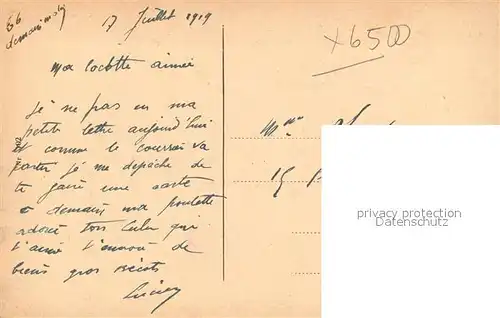 66
demain matin
17 Juillet 1919
Ma cocotte aimée
Je ne pas eu ma
petite lettre aujourd'hui
et comme le courrai va
partir je me depache de
te faire une carte
a demain ma poulette
adoré ton Lulu qui
t'aime t'envoie de
biens gros
Lucien
x6500
Mme
15
privacy protection
Datenschutz